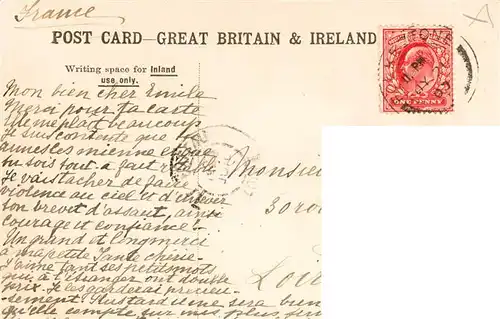 France
POST CARD—GREAT BRITAIN & IRELAND
Writing space for Inland
use only.
ONE PENNY
Mon bien cher Emile
Merci pour ta carte
elle me plaît beaucoup.
Je suis contente que tu
aimes les miennes et que
tu sois tout à fait rétabli
Je vais tâcher de faire
violence au ciel et d'enlever
ton brevet d'assaut, ainsi
courage et confiance!
Un grand et long merci
à ma petite Tante chérie.
J'aime tant ses petits mots
qui à l'étranger ont double
prix. Je les garde précieu-
sement. Mustard une sera bien
qu'elle compte sur mes plus
Monsieur
30
Loir